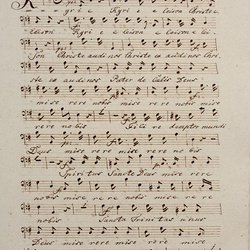 Kyrie e leison Christe
eleison Kyri e e leison eleison e le
ison Christe audi nos Christe ex audi nos Chri
ste ex audi nos Pater de Cælis Deus
mise rere nobis mise re re mise re
re re no bis Fili re demptor mundi
Deus mise re re mise re re no bis
Spiritus Sancte Deus mise re re
nobis mise re re mise re re re
nobis Sancta Trinitas unus
Deus mise re re mise re re mise